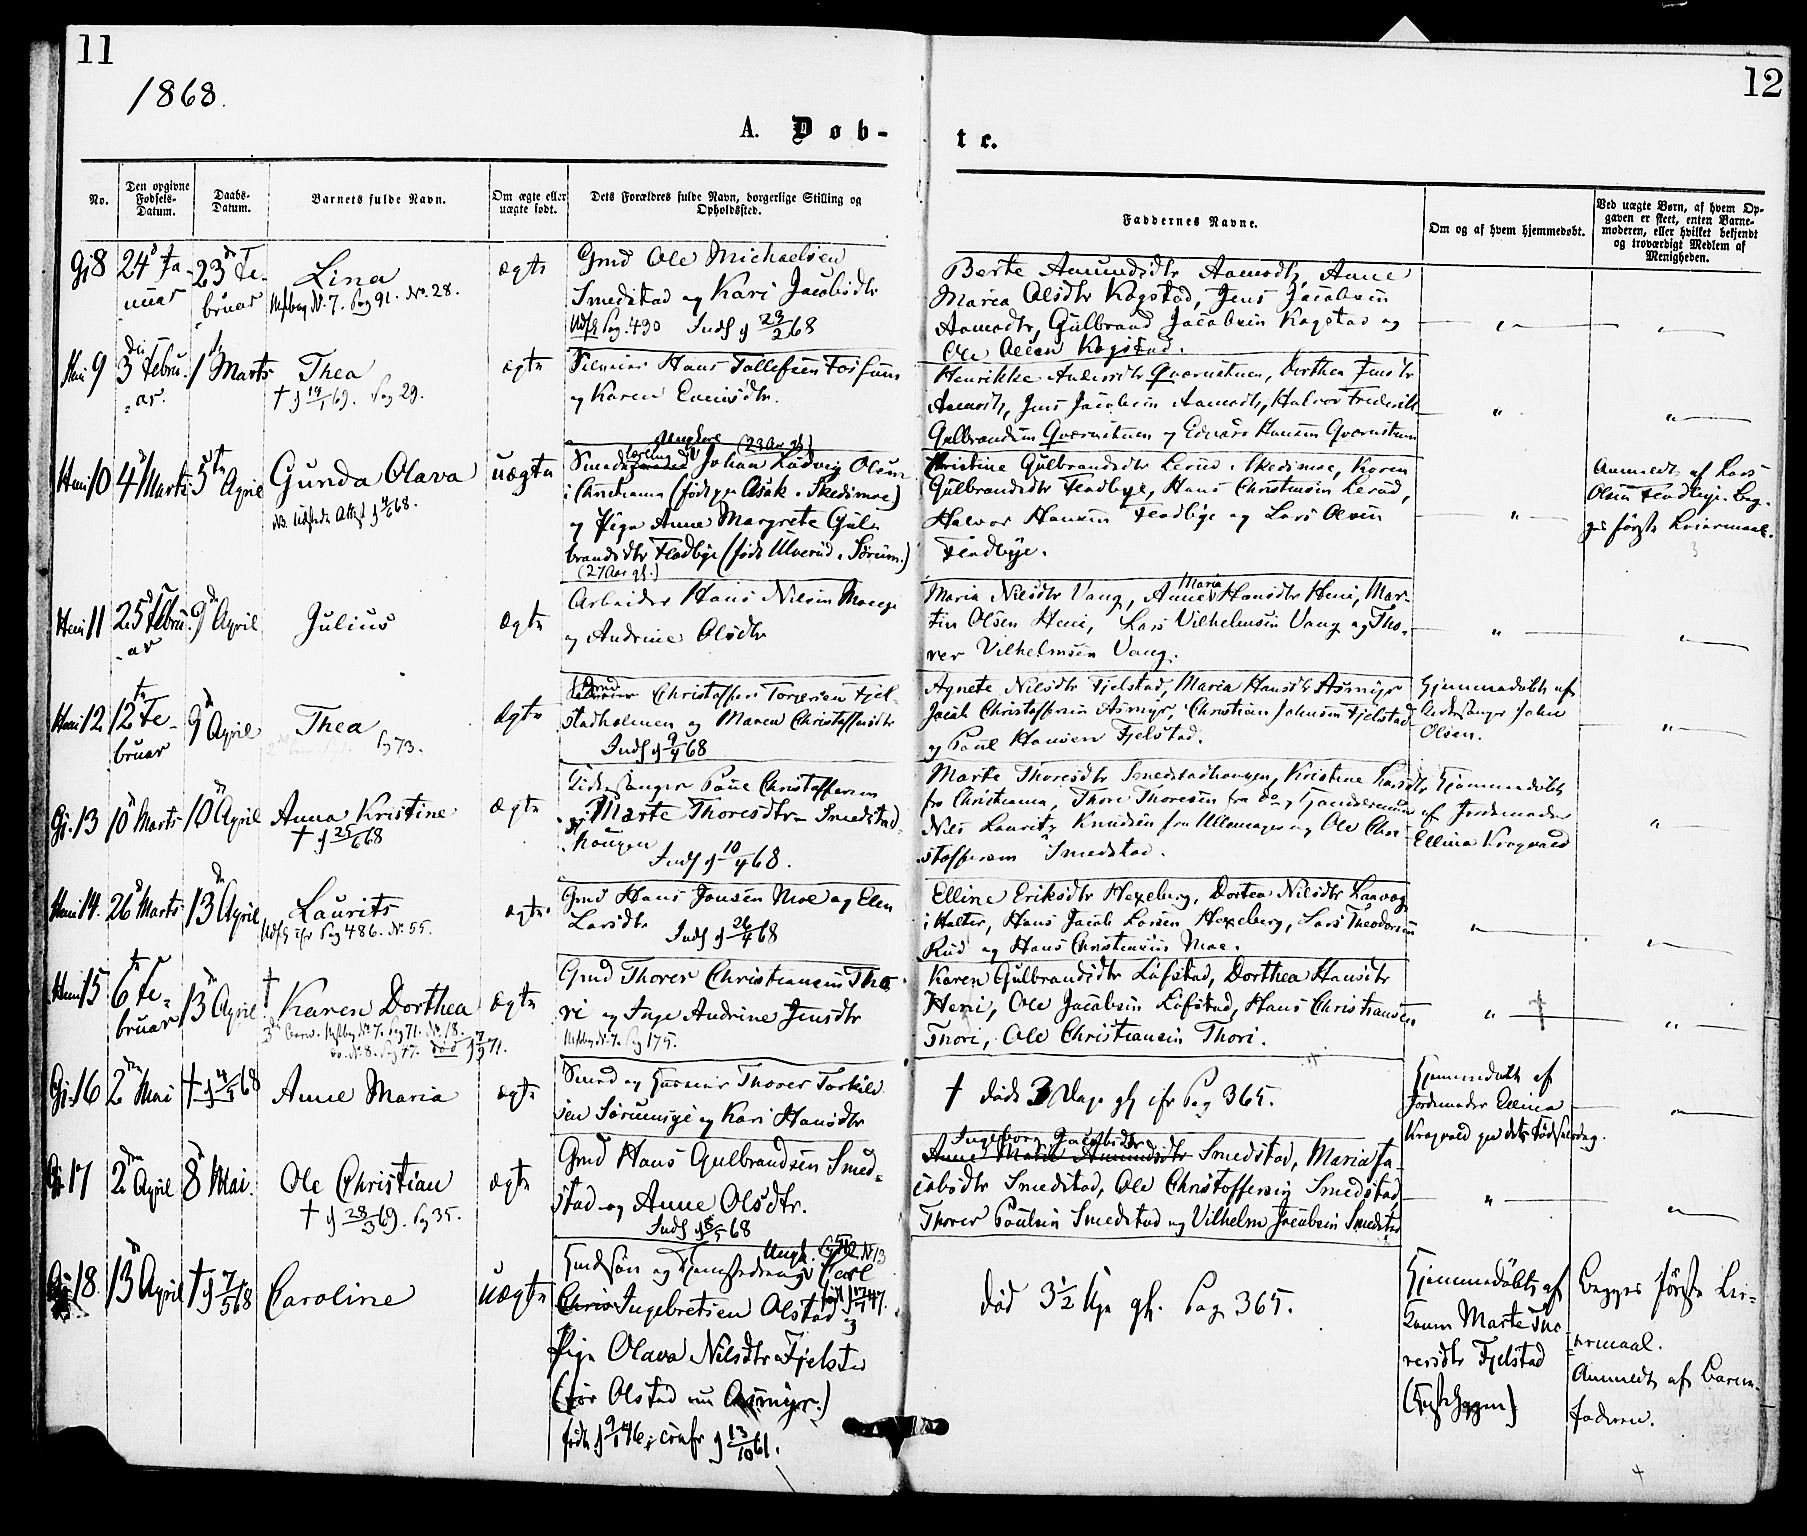 11
12
1868.
A. Døb-
te.
No.
Den opgivne
Fødsels-
Datum.
Daabs-
Datum.
Barnets fulde Navn.
Om ægte eller
uægte født.
Dets Forældres fulde Navn, borgerlige Stilling og
Opholdssted.
Faddernes Navne.
Om og af hvem hjemmedøbt.
Ved uægte Børn, af hvem Op-
gaven er skeet, enten Barne-
moderen, eller hvilket bekjendt
og troværdigt Medlem af
Menigheden.
Gj 8
24 Ja-
nuar
23 Fe-
bruar
Lina
Pag 91. No. 28.
ægte
Gmd Ole Michaelsen
Smedstad og Kari Jacobsdtr
Pag. 430 Inds g 23/2 68
Berte Amundsdtr Aamodt, Anne
Maria Olsdtr Kogstad, Jens Jacobsen
Aamodt, Gulbrand Jacobsen Kogstad og
Ole Olsen Kogstad.
9
3 Febru-
ar.
1 Marts
Thea
† g 14/1 69. Pag 29.
ægte
Hans Tollefsen Fossum
og Karen Evensdtr.
Henrikke Andersdtr Qværnstuen, Dorthea Jensdtr
Aamodt, Jens Jacobsen Aamodt, Halvor Frederik
Gulbrandsen Qværnstuen og Edvard Hansen Qværnstuen
10
4 Marts
5 April
Gunda Olava
68.
uægte
Ungkarl (23 Aar gl.)
Johan Ludvig Olsen
i Christiania (født paa Asak i Skedsmoe)
og Pige Anne Margrete Gul-
brandsdtr Fladbye (født Ulverud i Sørum.)
(27 Aar gl.)
Christine Gulbrandsdtr Lerud i Skedsmoe, Karen
Gulbrandsdtr Fladbye, Hans Christensen Lerud,
Halvor Hansen Fladbye og Lars Olsen
Fladbye.
Anmeldt af Lars
Olsen Fladbye. Beg-
ges første Leiermaal.
11
25 Febru-
ar
9 April
Julius
ægte
Arbeider Hans Nilsen
og Andrine Olsdtr
Maria Nilsdtr Vang, Anne Maria Hansdtr Heni, Mar-
tin Olsen Heni, Lars Vilhelmsen Vang og Tho-
rer Vilhelmsen Vang.
12
12 Fe-
bruar
9 April
Thea
Pg 73.
ægte
Christoffer Torgersen Fjel-
stadholmen og Maren Christoffersdtr
Inds g 9/4 68
Agnete Nilsdtr Fjelstad, Maria Hansdtr Asmyr
Jacob Christoffersen Asmyr, Christian Johnsen Fjelstad
og Paul Hansen Fjelstad.
Hjemmedøbt af
Kirkesanger John
Olsen.
Gj. 13
10 Marts
10 April
Anna Kristine
† g 25/6 68
ægte
Paul Christoffersen
og Marte Thoresdtr Smedstad-
haugen
Inds g 10/4 68.
Marte Thoresdtr Smedstadhaugen, Kristine Larsdtr
fra Christiania, Thore Thoresen fra do,
Nils Lauritz Knudsen fra Ullensager og Ole Chri-
stoffersen Smedstad.
Hjemmedøbt
af Jordemoder
Ellina Kragvald
14.
26 Marts
13 April
Laurits
Pag 486. No. 55.
ægte
Gmd Hans Jensen Moe og Elen
Larsdtr
Inds g 26/4 68
Elline Eriksdtr Hexeberg, Dortea Nilsdtr
i Holter, Hans Jacob Larsen Hexeberg, Lars Theodorsen
Rud og Hans Christensen Moe.
15
6 Fe-
bruar
13 April
†
Karen Dorthea
Pag 71. No. 18.
død 71.
ægte
Gmd Thorer Christiansen Tho-
ri og Inge Andrine Jensdtr
Pag 175.
Karen Gulbrandsdtr Løfstad, Dorthea Hansdtr
Heni, Ole Jacobsen Løfstad, Hans Christiansen
Thori, Ole Christiansen Thori.
Gj. 16
2 Mai
† g 4/5 68
Anne Maria
ægte
Smed og Thorer Torkild-
sen og Kari Hansdtr
† død 3 Dage gl cfr Pag 365.
Hjemmedøbt af
Jordemoder Ellina
Kragvald paa dets Fødselsdag.
17
2 April
8 Mai.
Ole Christian
† g 28/3 69. Pg 35.
ægte
Gmd Hans Gulbrandsen Smed-
stad og Anne Olsdtr.
Inds g 8/5 68
Ingeborg Jacobsdtr
Anne Marie Amundsdtr Smedstad, Maria Ja-
cobsdtr Smedstad, Ole Christoffersen Smedstad
Thorer Poulsen Smedstad og Vilhelm Jacobsen Smedstad
18.
13 April
† g 7/5 68
Caroline
uægte
Ungk. Carl
Ingebretsen Olstad og
Pige Olava Nilsdtr Fjelstad
(før Olstad nu Asmyr.)
født g 9/1 46, confr g 13/10 61.
død 3 1/2 Uge gl. Pag 365.
Hjemmedøbt af
Marte Tho-
rersdtr Fjelstad
Begges første Lei-
ermaal.
Anmeldt af Barne-
faderen.